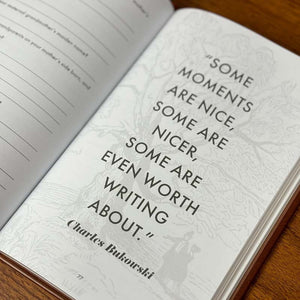 maternal grandmother's maiden name?
grandparents on your mother's side born, and
"SOME
MOMENTS
ARE NICE,
SOME ARE
NICER,
SOME ARE
EVEN WORTH
WRITING
ABOUT."
Charles Bukowski
77